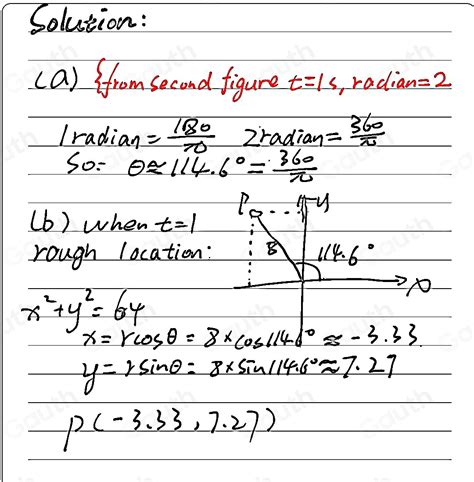 Solution:
(a) {from second figure t=1s, radian=2
1radian = 180/π 2radian = 360/π
So: θ≈114.6° = 360/π
(b) when t=1
rough location:
P y
8 114.6°
x
x²+y²=64
x=rcosθ = 8×cos114.6° ≈ -3.33.
y=rsinθ= 8×sin114.6°≈7.27
P(-3.33, 7.27)